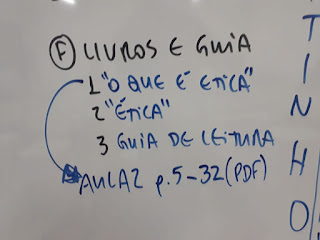 F LIVROS E GUIA
1 "O QUE É ETICA"
2 "ÉTICA"
3 GUIA DE LEITURA
AULA 2 p. 5-32 (PDF)
T
I
N
H
O